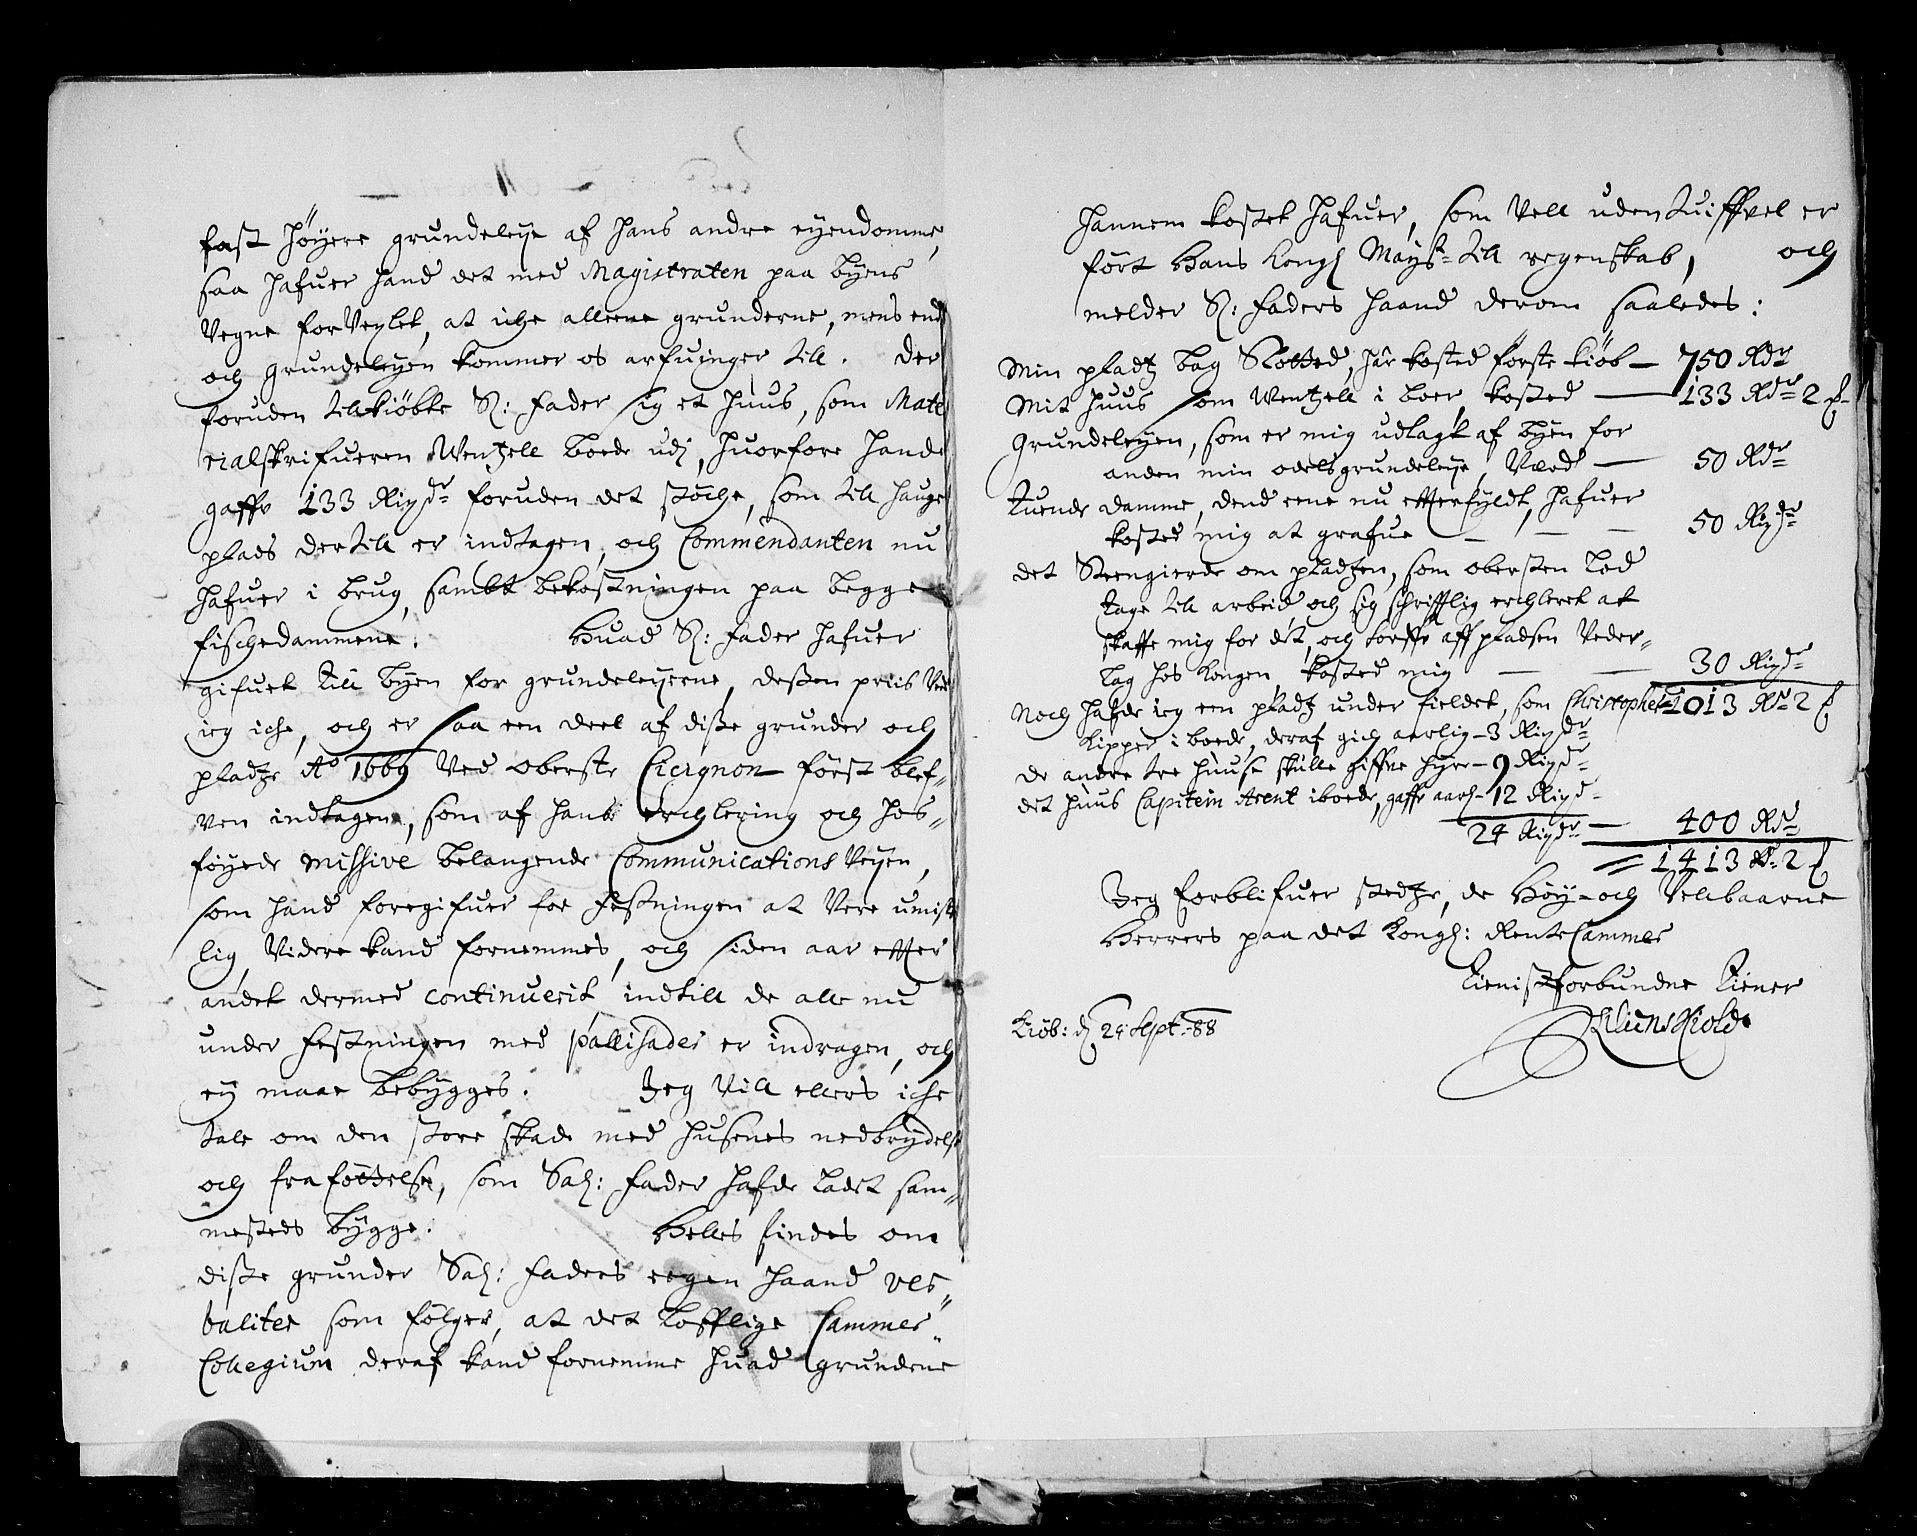 fast høyere grundeleye af hans andre eyendomme,
saa hafuer hand det med Magistraten paa byens
Vegne forVexlet, at iche alleene grunderne, mens end
och grundeleyen kommer os arfuinger till. Der
foruden tilkiøbte S: Fader sig et huus, som Mate
rialskrifueren Wentzell boede udj, huorfore hand
gaffs 133 Rixdr foruden det støche, som till hauge
plads dertill er indtagen, och Commendanten nu
hafuer i brug, sambt bekostningen paa begge
fischedammene. Huad S: Fader hafuer
gifuet till byen for grundeleyerne, dessen priis Veed
ieg iche, och er saa een deel af disse grunder och
pladze Ao 1669 Ved oberste Ciergnon først blef-
ven indtagen, som af hans erchlering och hos-
føyede missive belangende Communications Veyen,
som hand foregifuer for festningen at Vere umist
lig Videre kand fornemmes, och siden aar efter
andet dermed continuerit indtill de alle nu
under festningen med pallisader er indragen, och
ey maae bebygges. Jeg Vill ellers iche
tale om den store skade med husenes nedbrydelse
och fraføttelse, som Sal: Fader hafde ladet sam-
mesteds bygge. Helles findes om
disse grunder Sal: Faders eegen haand ver-
baliter som følger, at det lofflige Cammer-
Collegium deraf kand fornemme huad grundene
hannem kostet hafuer, som Vell uden tuiffvel er
ført Hans Kongl Mayst till regenskab, och
melder S: Faders haand derom saaledes:
Min pladtz bag Slotted, har kosted første kiøb — 750 Rdr
Mit huus som Wentzell i boer, kosted — 133 Rdr 2
Grundeleyen, som er mig udlagt af byen for
anden min odelsgrundeleye, Verd — 50 Rdr
tuende damme, dend eene nu efterfyldt, hafuer
kosted mig at grafue — — — 50 Rixdr
det Steengierde om pladzen, som obersten lod
tage till arbeid och sig schrifftlig erchleret at
skaffe mig for det, och torffs aff pladsen Veder-
lag hos Kongen, kosted mig — — 30 Rixdr
Noch hafde ieg een pladtz under fieldet, som Christopher 1013 Rd 2
Kipper i boede, deraf gich aarlig – 3 Rixdr
de andre tre huuse skulle giffve hyre – 9 Rixdr
det huus Capitein Arent iboede, gaffs aarl – 12 Rixd
24 Rixdr — 400 Rdr
1413 Rd: 2
Jeg forblifuer stedtze, de Høy- och Velbaarne
Herrers paa det Kongl: RenteCammer
Tienistforbundne Tiener
Kiøb: d 24 Sept: -88